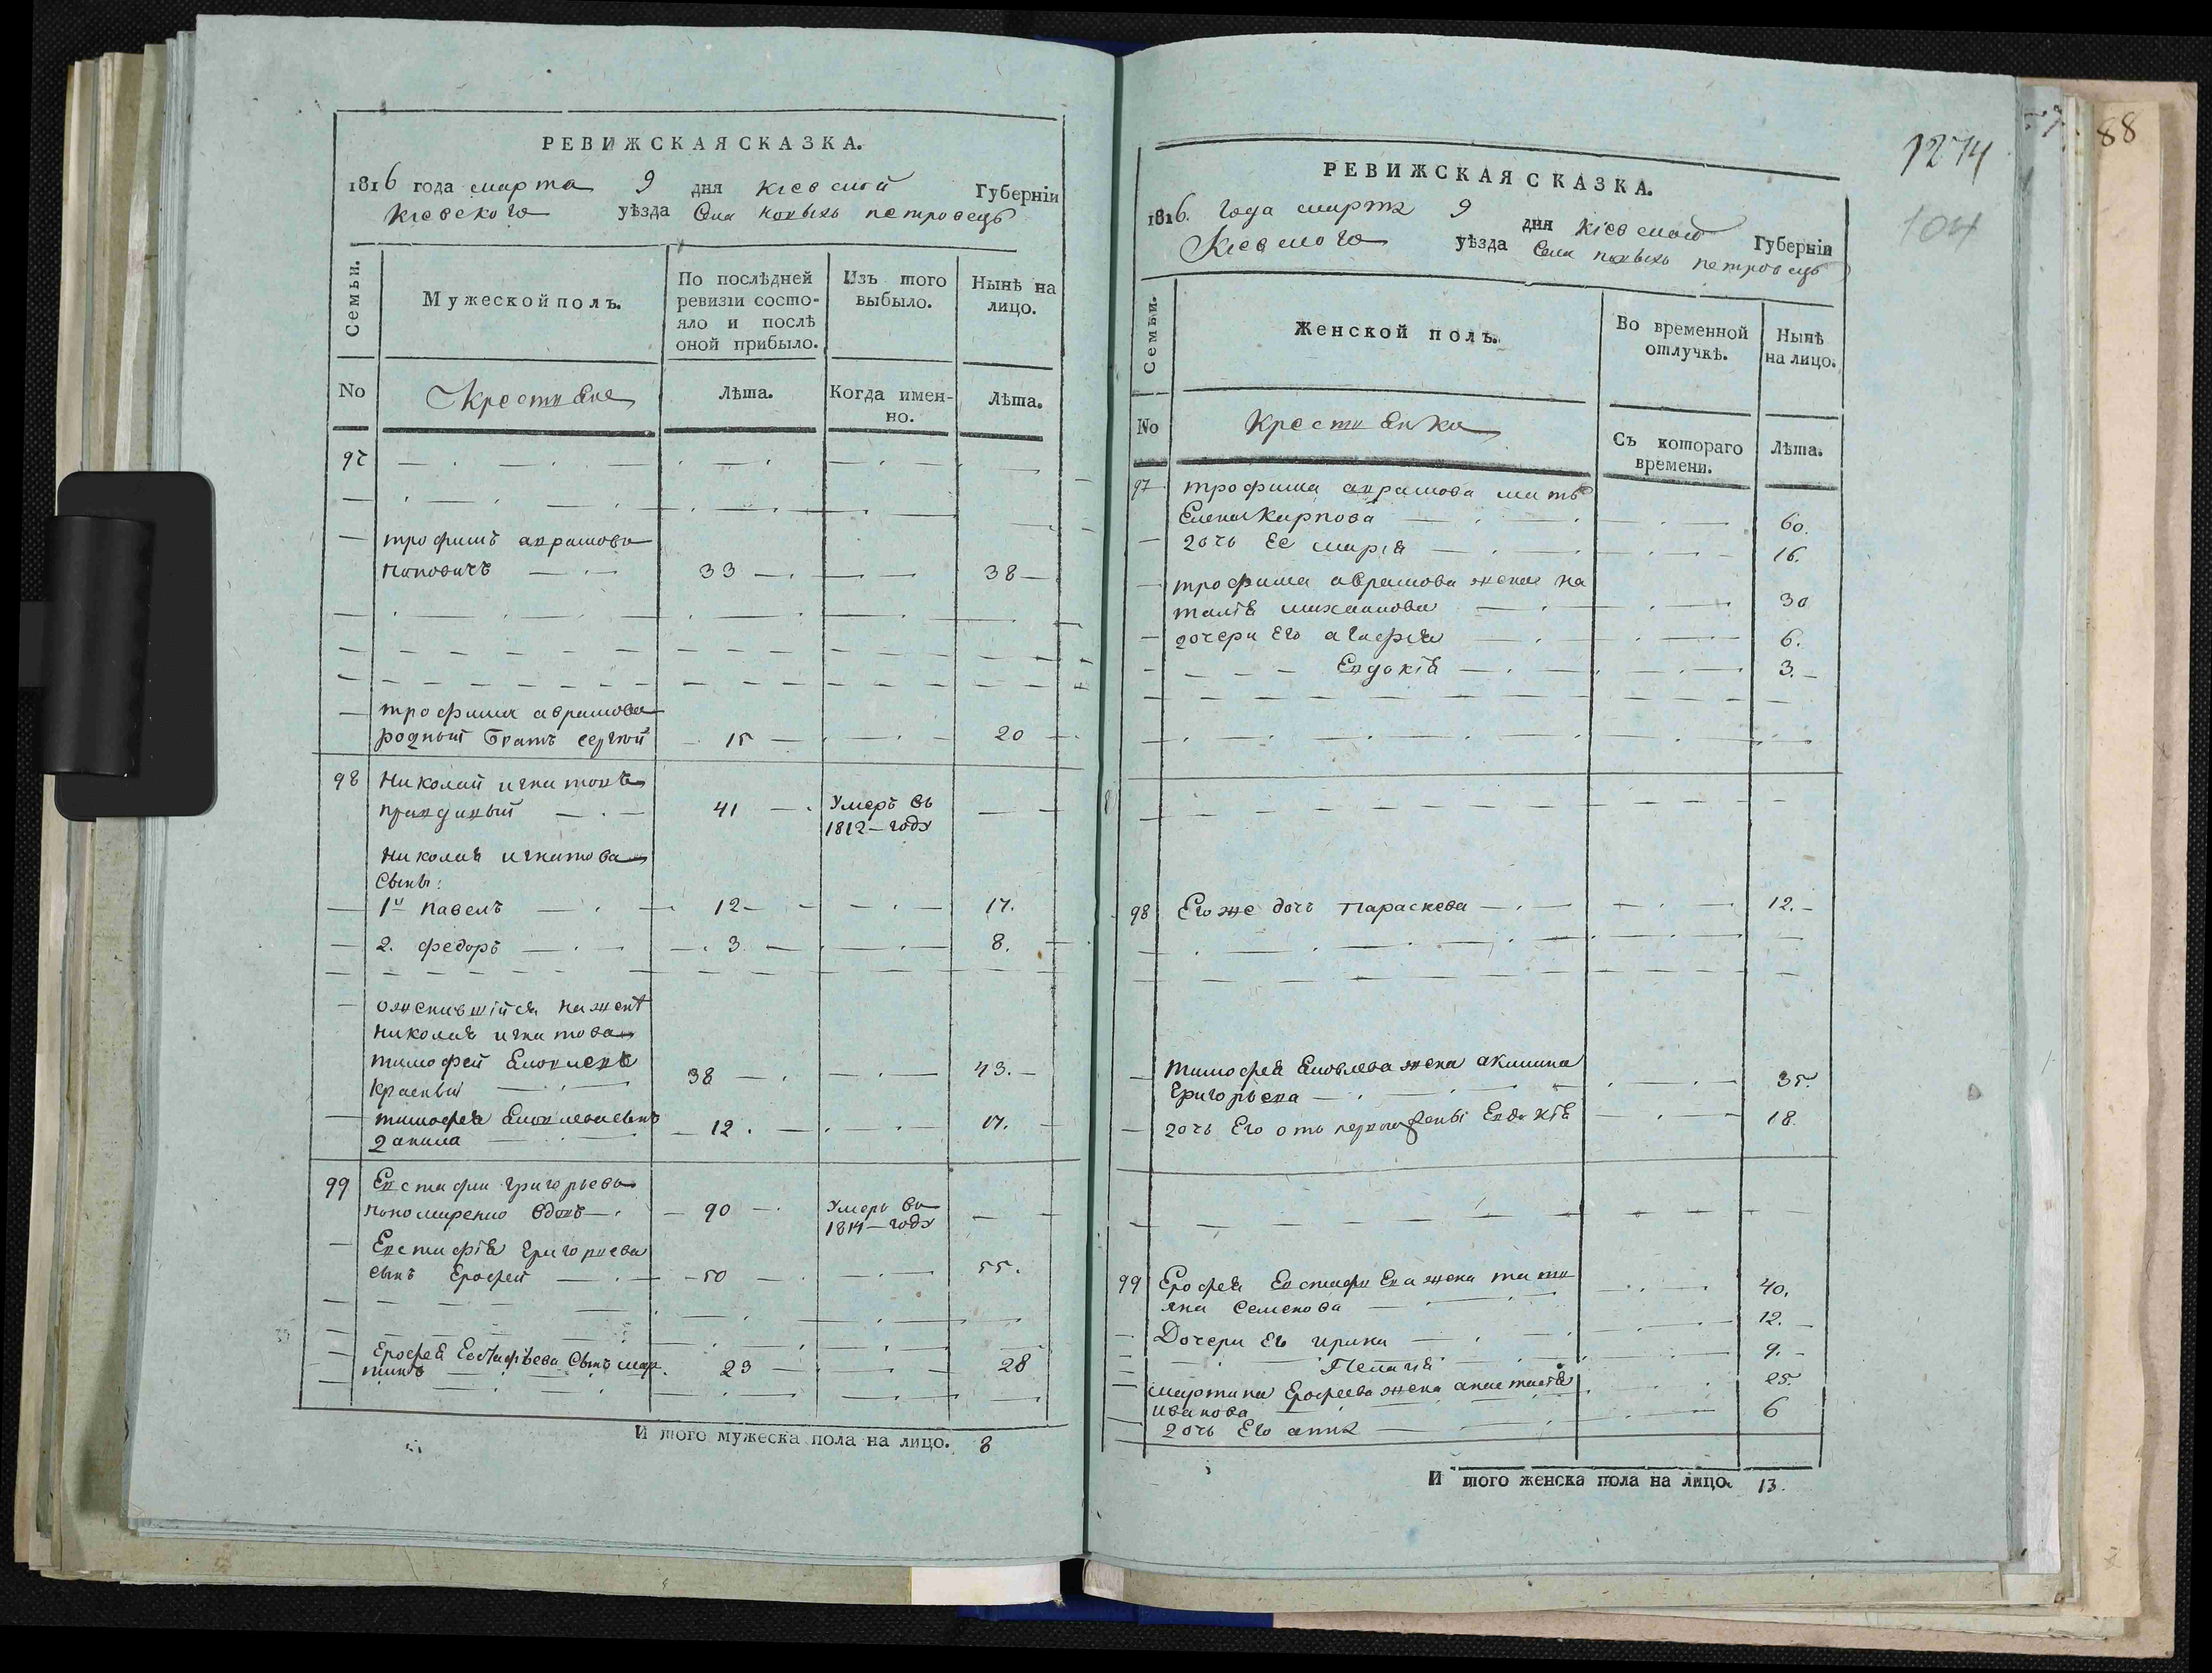 РЕВИЖСКАЯ СКАЗКА.
1816 года марта 9 дня Кіевской Губерніи
Кіевского уѣзда Села новыхъ петровецъ
Семьи.
Мужеской полъ.
По послѣдней
ревизіи состо-
яло и послѣ
оной прибыло.
Изъ того
выбыло.
Нынѣ на
лицо.
No
Крестьяне
Лѣта.
Когда имен-
но.
Лѣта.
97
трофимъ аврамовъ
поповичъ 33 38
трофима аврамова
родный братъ сергѣй 15 20
98 Николай игнатовъ
41 Умеръ въ
1812 годѣ
Николая игнатова
сыны:
1й павелъ 12 17.
2. федоръ 3 8.
оженившійся на женѣ
николая игнатова
тимофей Яковлевъ
Красный 38 43.
тимофея Яковлева сынъ
данила 12. 17.
99 Евстафи григорьевъ
пономаренко вдовъ 90 Умеръ въ
1814 годѣ
Евстафія григорьева
сынъ Ерофей 50 55.
Ерофея Евстафьева сынъ мар
тинъ 23 28
И того мужеска пола на лицо. 8
1274
104
88
РЕВИЖСКАЯ СКАЗКА.
1816. года марта 9 дня Кіевской Губерніи
Кіевского уѣзда Села новыхъ петровецъ
Семьи.
Женской полъ.
Во временной
отлучкѣ.
Нынѣ
на лицо.
No
Крестьянки
Съ котораго
времени.
Лѣта.
97 трофима аврамова мать
Елена Карпова 60.
дочь Ее марія 16.
трофима аврамова жена на
талія михайлова 30
дочери Его агафія 6.
Евдокія 3.
98 Его же дочь Параскева 12.
тимофея Яковлева жена акилина
Григорьева 35.
дочь Его отъ первой жены Евдокія 18.
99 Ерофея Евстафиева жена тати
яна Семенова 40.
Дочери Его ирина 12.
Пелагія 9.
мартина Ерофеева жена анастасія
иванова 25.
дочь Его анна 6
И того женска пола на лицо. 13.